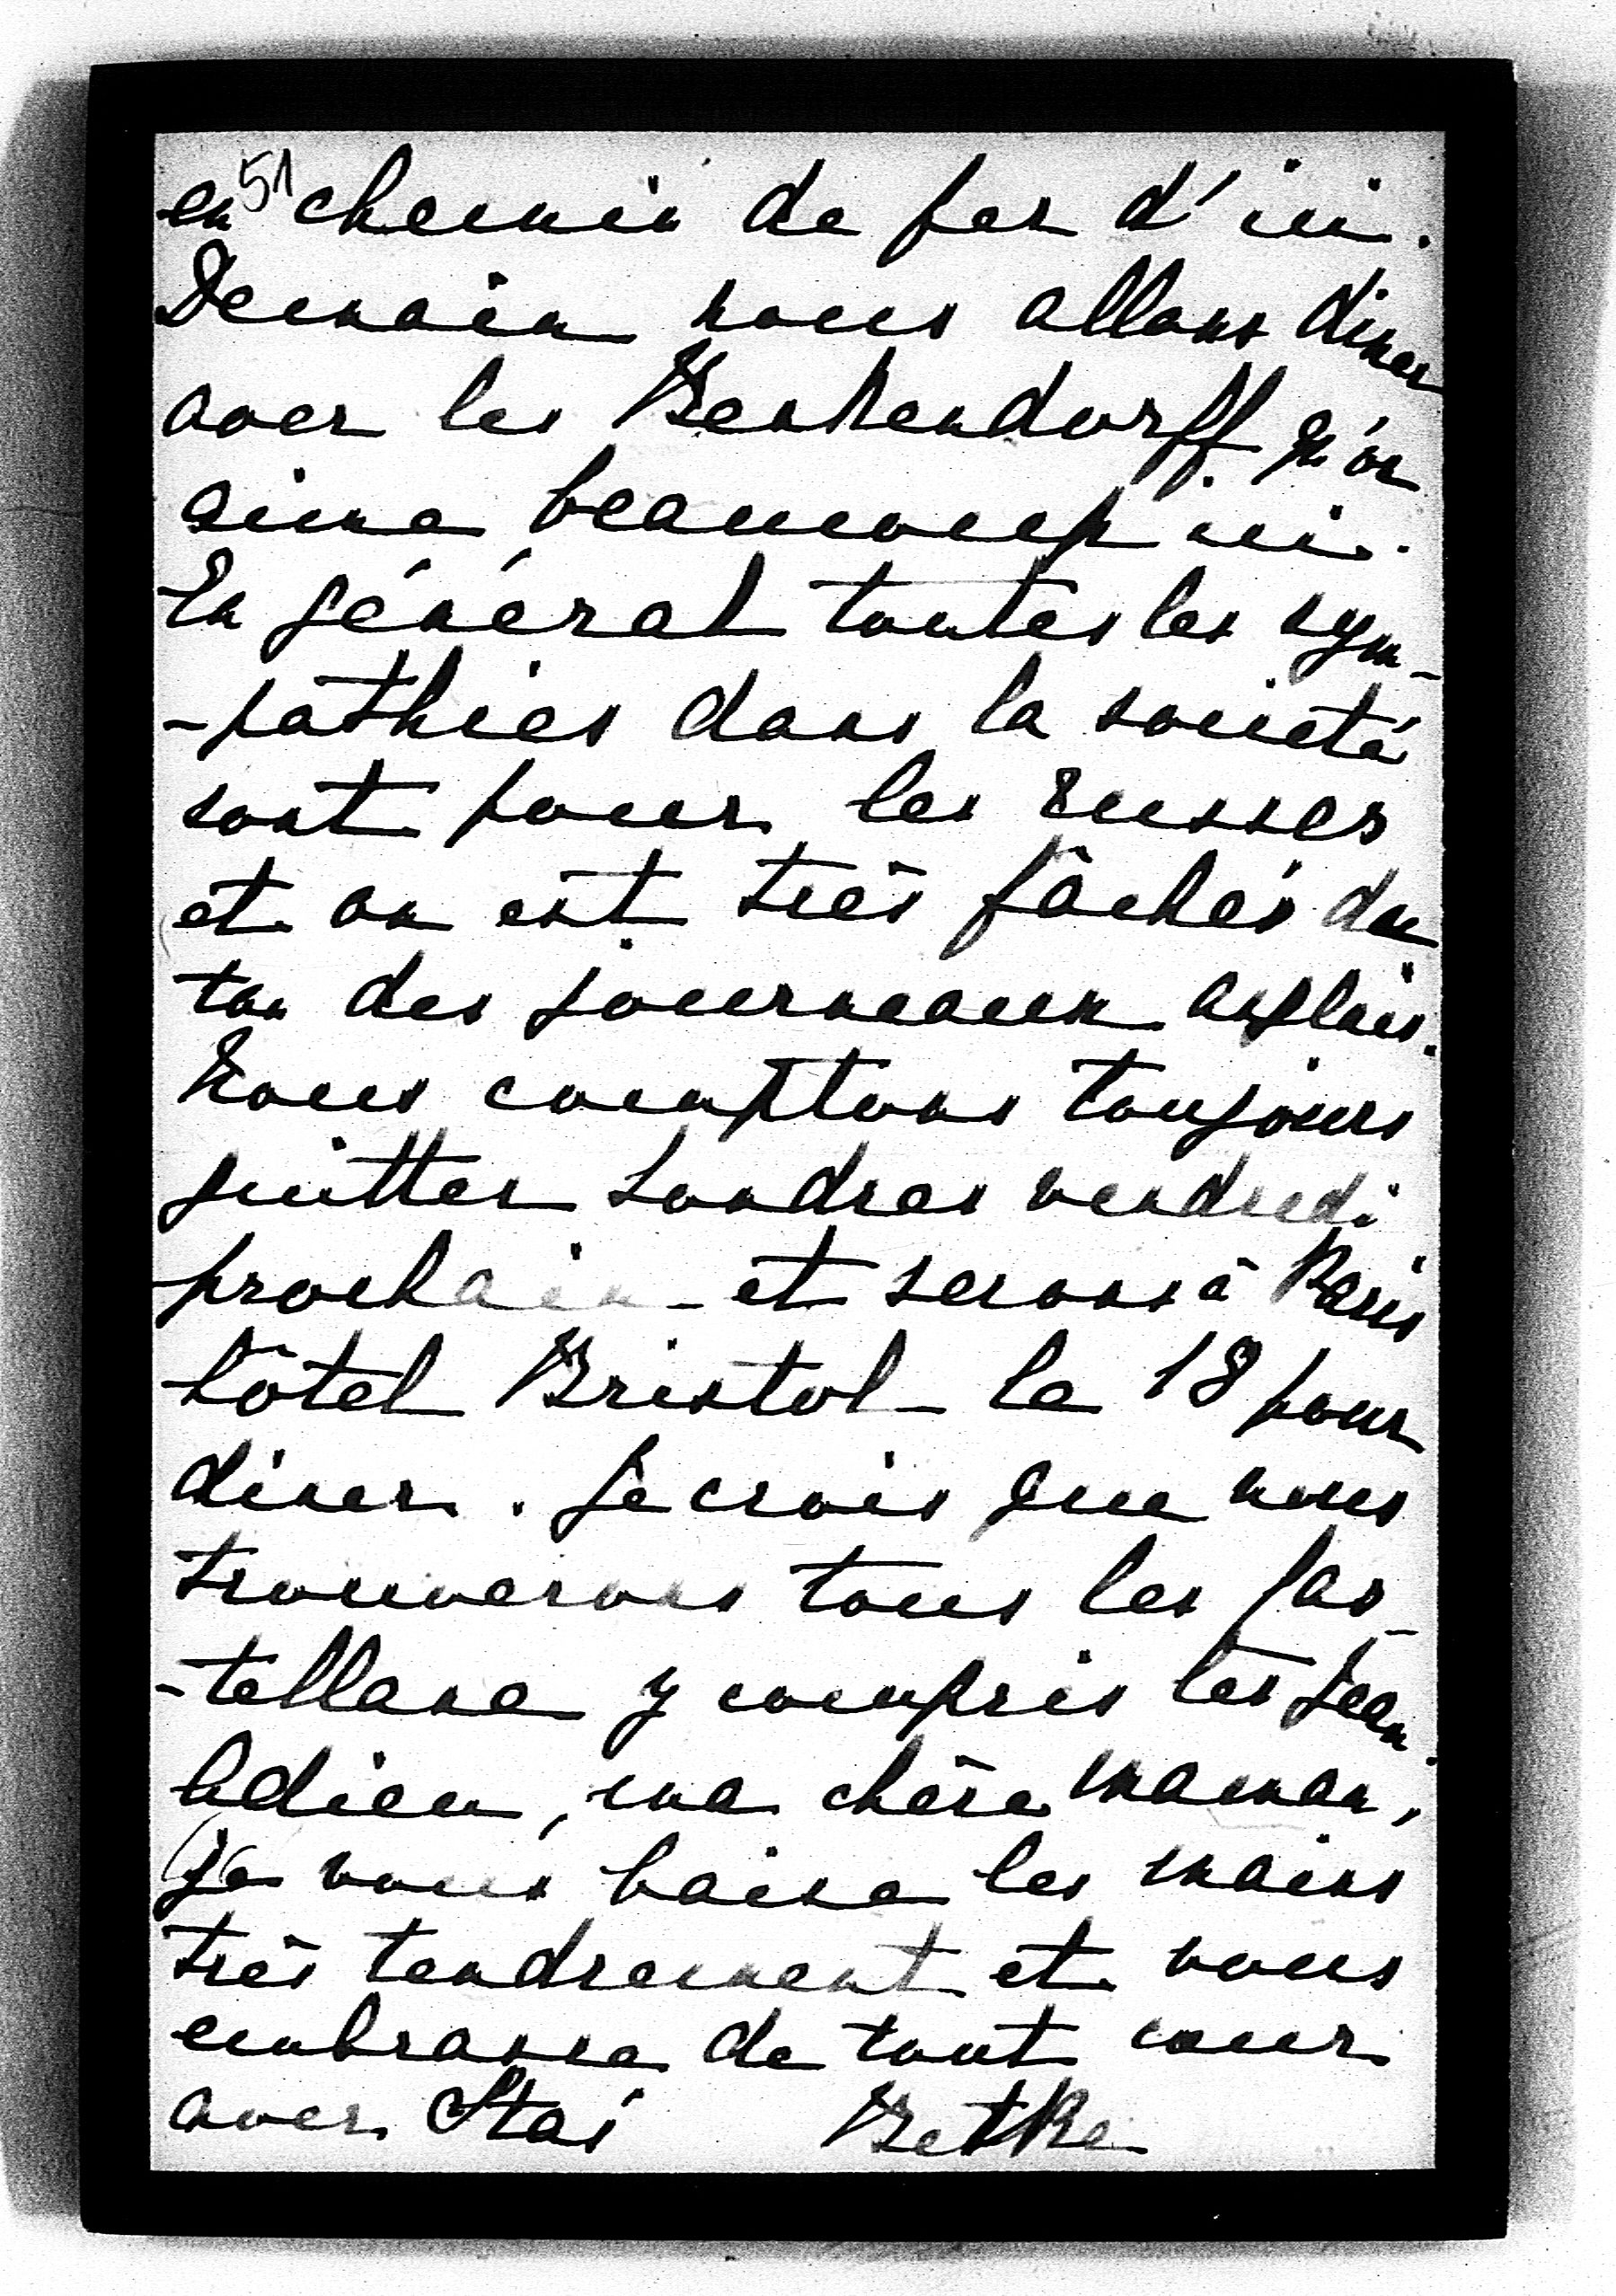 51
en chemin de fer d'ici.
Demain nous allons diner
avec les Benkendorff. qu'on
aime beaucoup ici.
En général toutes les sym-
-pathies dans la société
sont pour les russes
et on est très fâchés du
ton des journeaux anglais.
Nous comptons toujours
quitter Londres vendredi
prochain - et serons à Paris
hôtel Bristol - le 18 pour
diner. Je crois que nous
trouverons tous les Cas-
-tellane y compris les Jean.
Adieu, ma chère maman,
je vous baise les mains
très tendrement et vous
embrasse de tout coeur
avec Stas Betke